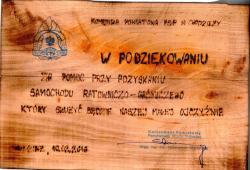 KOMENDA POWIATOWA PSP W CHODZIEŻY
W PODZIĘKOWANIU
ZA POMOC PRZY POZYSKANIU
SAMOCHODU RATOWNICZO-GAŚNICZEGO
KTÓRY SŁUŻYĆ BĘDZIE NASZEJ MAŁEJ OJCZYŹNIE